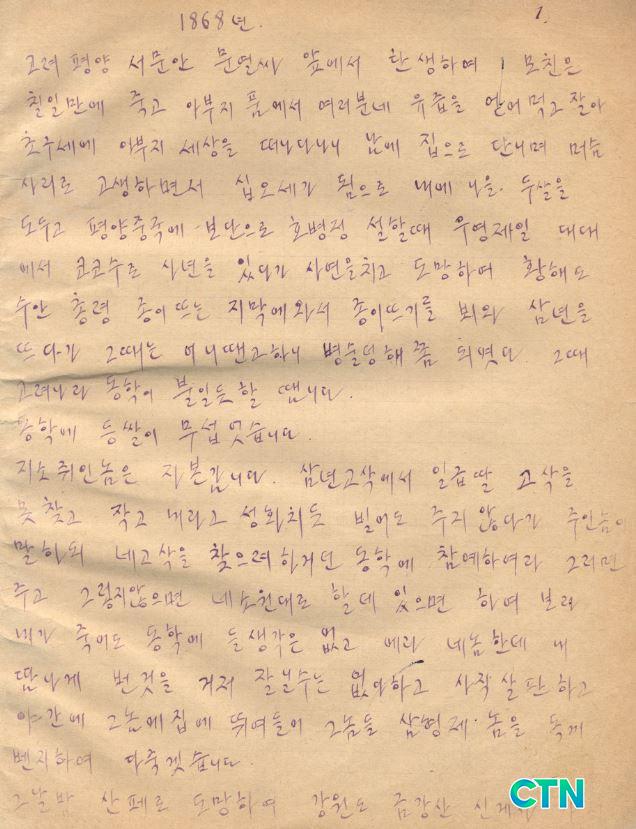 1868년.
1.
고려 평양 서문안 문열사 앞에서 탄생하여 모친은
칠일만에 죽고 아부지 품에서 여러분네 유즙을 얻어먹고 잘아
초구세에 아부지 세상을 떠나니 남에 집으로 단니며 머슴
사리로 고생하면서 십오세가 됨으로 내에 나을. 두살을
도두고 평양중국에 보단으로 호병정 설할때 우영제일 대대
에서 코코수로 사년을 있다가 사연을치고 도망하여 황해도
수안 총령 종이뜨는 지막에와서 종이뜨기를 뵈와 삼년을
뜨다가 그때는 어니땐고하니 병술 정해쯤 되엿다. 그때
고려나라 동학이 불일듯할 땝니다.
동학에 등쌀이 무섭엇습니다.
지소쥐인놈은 자본갑니다. 삼년고삭에서 일급딸 고삭을
못찾고 작고 내라고 성화치듯 빌어도 주지않다가 주인놈이
말하되 네고삭을 찾으려하거던 동학에 참예하여라 그러면
주고 그렇지않으면 네소원대로 할데있으면 하여 보라
내가 죽어도 동학에 들생각은 없고 에라 네놈한테 내
땀나게 번것을 거저 잘닐수는 없다하고 사작살판하고
야간에 그놈에집에 뛰여들어 그놈들 삼형제 놈을 독기
벤지하여 다죽겟습니다.
그날밤 산페로 도망하여 강원도 금강산 신계사
CTN